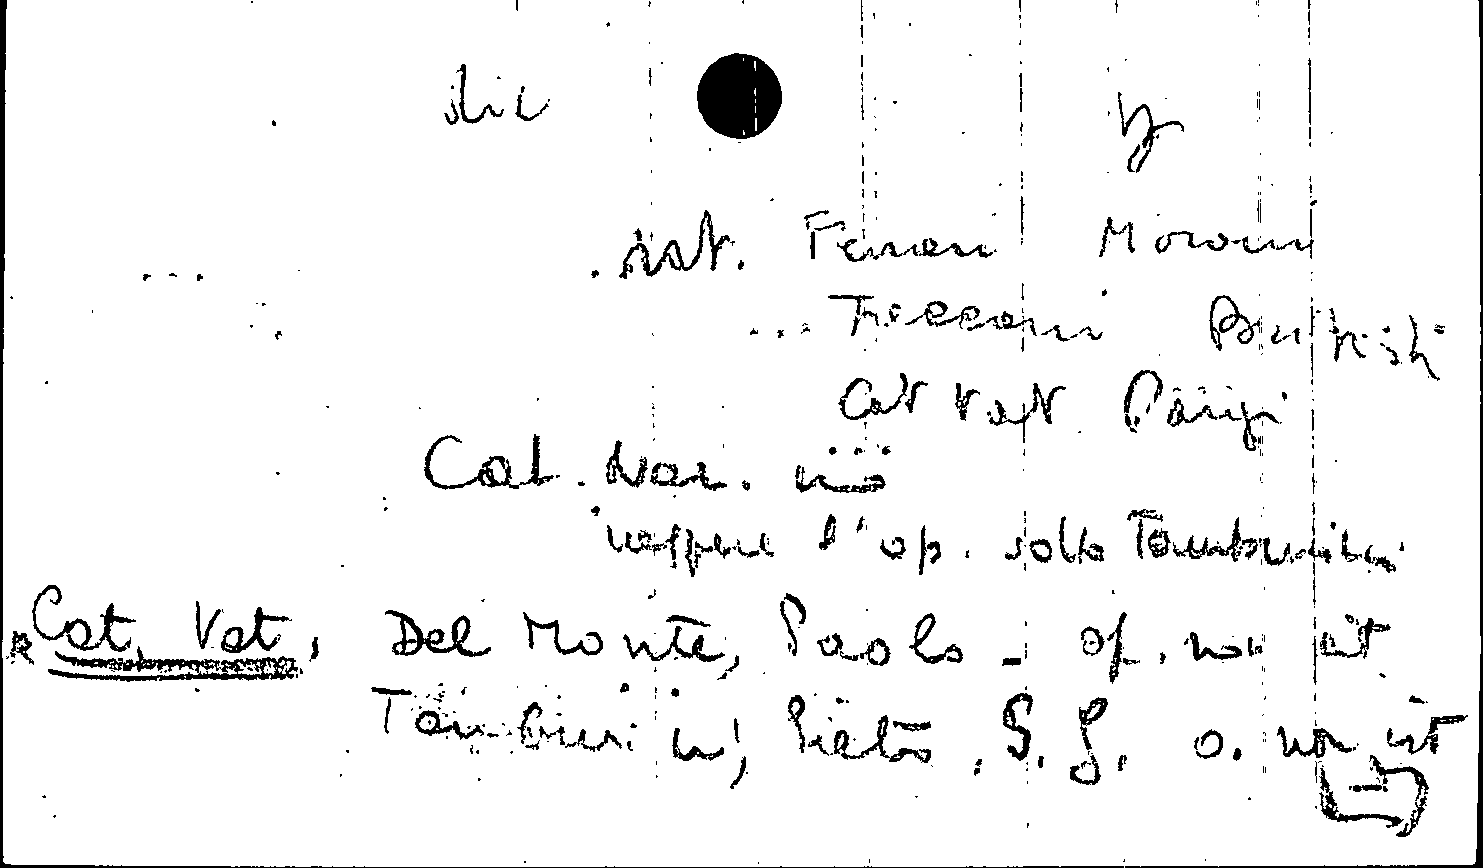 Ferrari Moroni
Treccani British
Cat Vat Parigi
Cat. Naz.
neppure l'op. sotto Tamburini
Cat. Vat, Del Monte, Paolo - op. non cit
Tamburini, Pietro, S.J. o. non cit